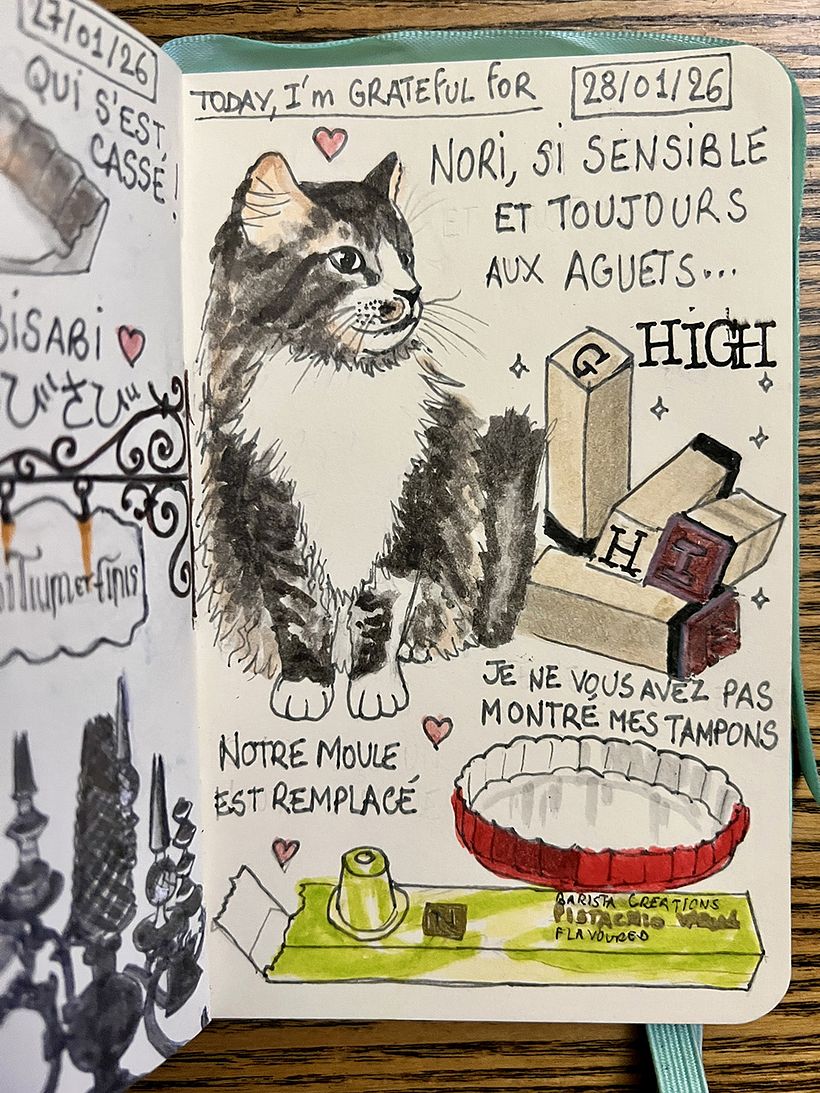 27/01/26
QUI S'EST
CASSÉ !
BISABI
びさび
et finis
TODAY, I'm GRATEFUL FOR
28/01/26
NORI, SI SENSIBLE
ET TOUJOURS
AUX AGUETS...
HIGH
G
H
I
JE NE VOUS AVEZ PAS
MONTRÉ MES TAMPONS
NOTRE MOULE
EST REMPLACÉ
N
BARISTA CREATIONS
PISTACHIO
FLAVOURED